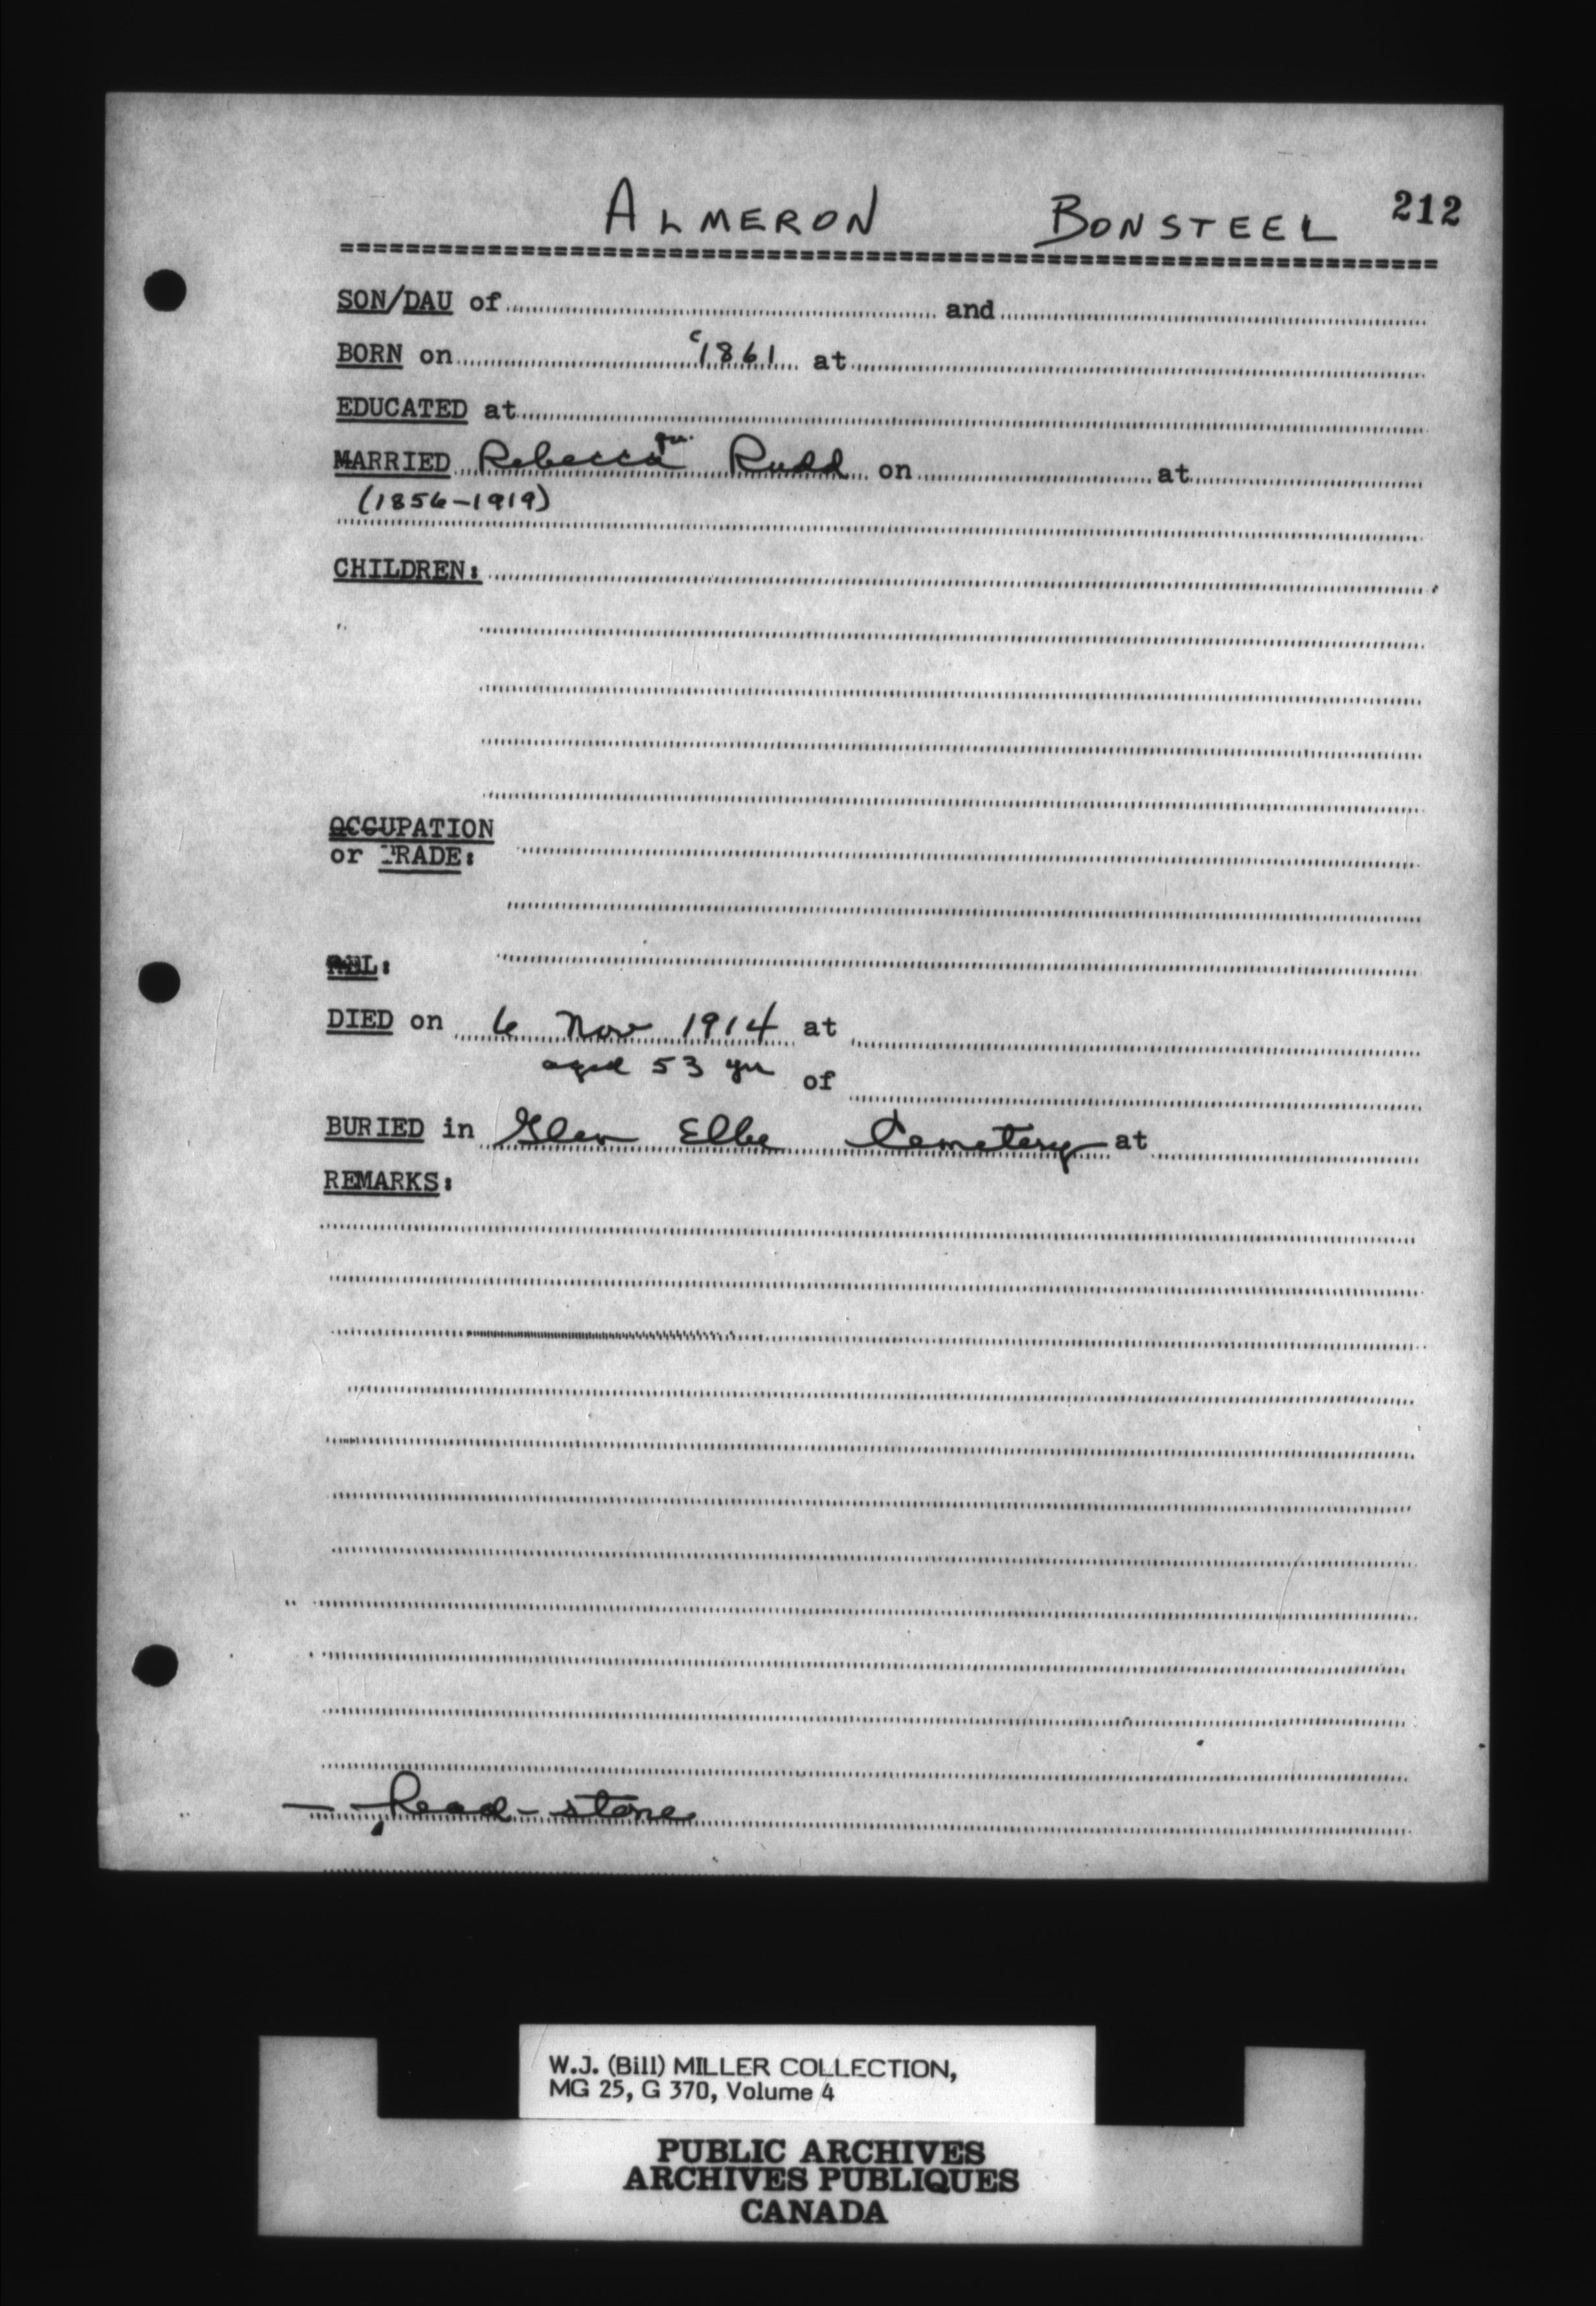 ALMERON BONSTEEL 212
SON/DAU of and
BORN on c1861 at
EDUCATED at
MARRIED Rebecca Rudd on at
(1856-1919)
CHILDREN:
OCCUPATION
or TRADE:
REL:
DIED on 6 Nov 1914 at
aged 53 yr of
BURIED in Glen Elbe Cemetery at
REMARKS:
- head-stone
W.J. (Bill) MILLER COLLECTION,
MG 25, G 370, Volume 4
PUBLIC ARCHIVES
ARCHIVES PUBLIQUES
CANADA